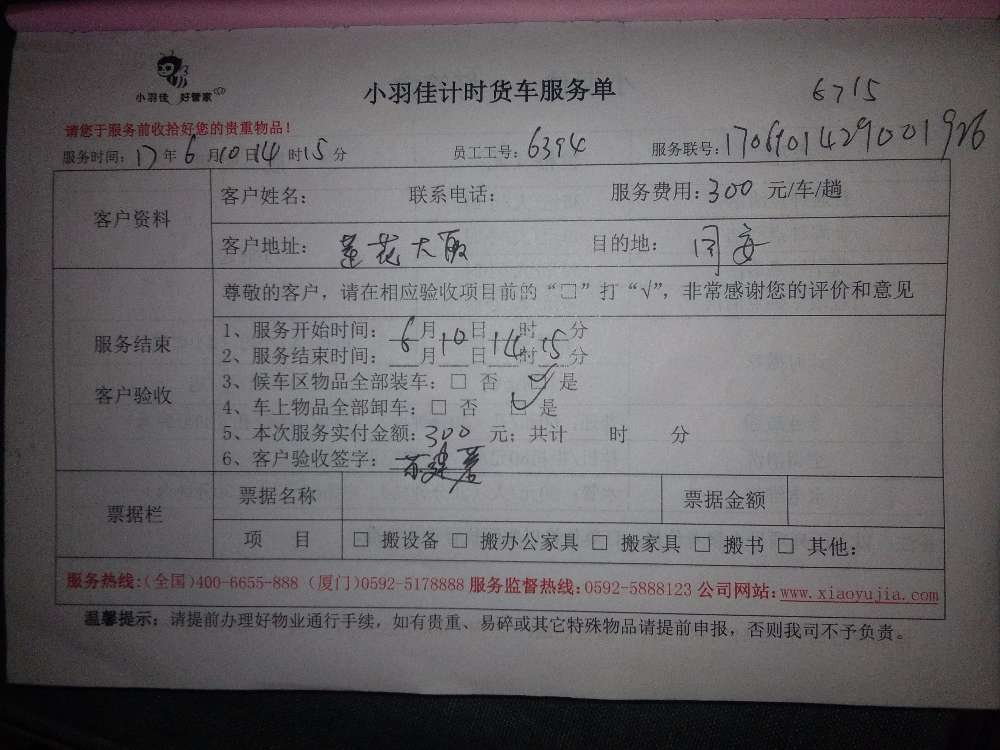 小羽佳 好管家
小羽佳计时货车服务单
6715
请您于服务前收拾好您的贵重物品！
服务时间：17年6月10日14时15分 员工工号：6394 服务联号：1706901429001926
客户资料
客户姓名： 联系电话： 服务费用：300 元/车/趟
客户地址：莲花大厦 目的地：同安
服务结束
客户验收
尊敬的客户，请在相应验收项目前的“□”打“√”，非常感谢您的评价和意见
1、服务开始时间：6月10日14时15分
2、服务结束时间：__月__日__时__分
3、候车区物品全部装车：□ 否 □ 是
4、车上物品全部卸车：□ 否 □ 是
5、本次服务实付金额：300 元；共计 时 分
6、客户验收签字：
票据栏
票据名称 票据金额
项 目 □ 搬设备 □ 搬办公家具 □ 搬家具 □ 搬书 □ 其他：
服务热线：(全国)400-6655-888 (厦门)0592-5178888 服务监督热线：0592-5888123 公司网站：www.xiaoyujia.com
温馨提示：请提前办理好物业通行手续，如有贵重、易碎或其它特殊物品请提前申报，否则我司不予负责。